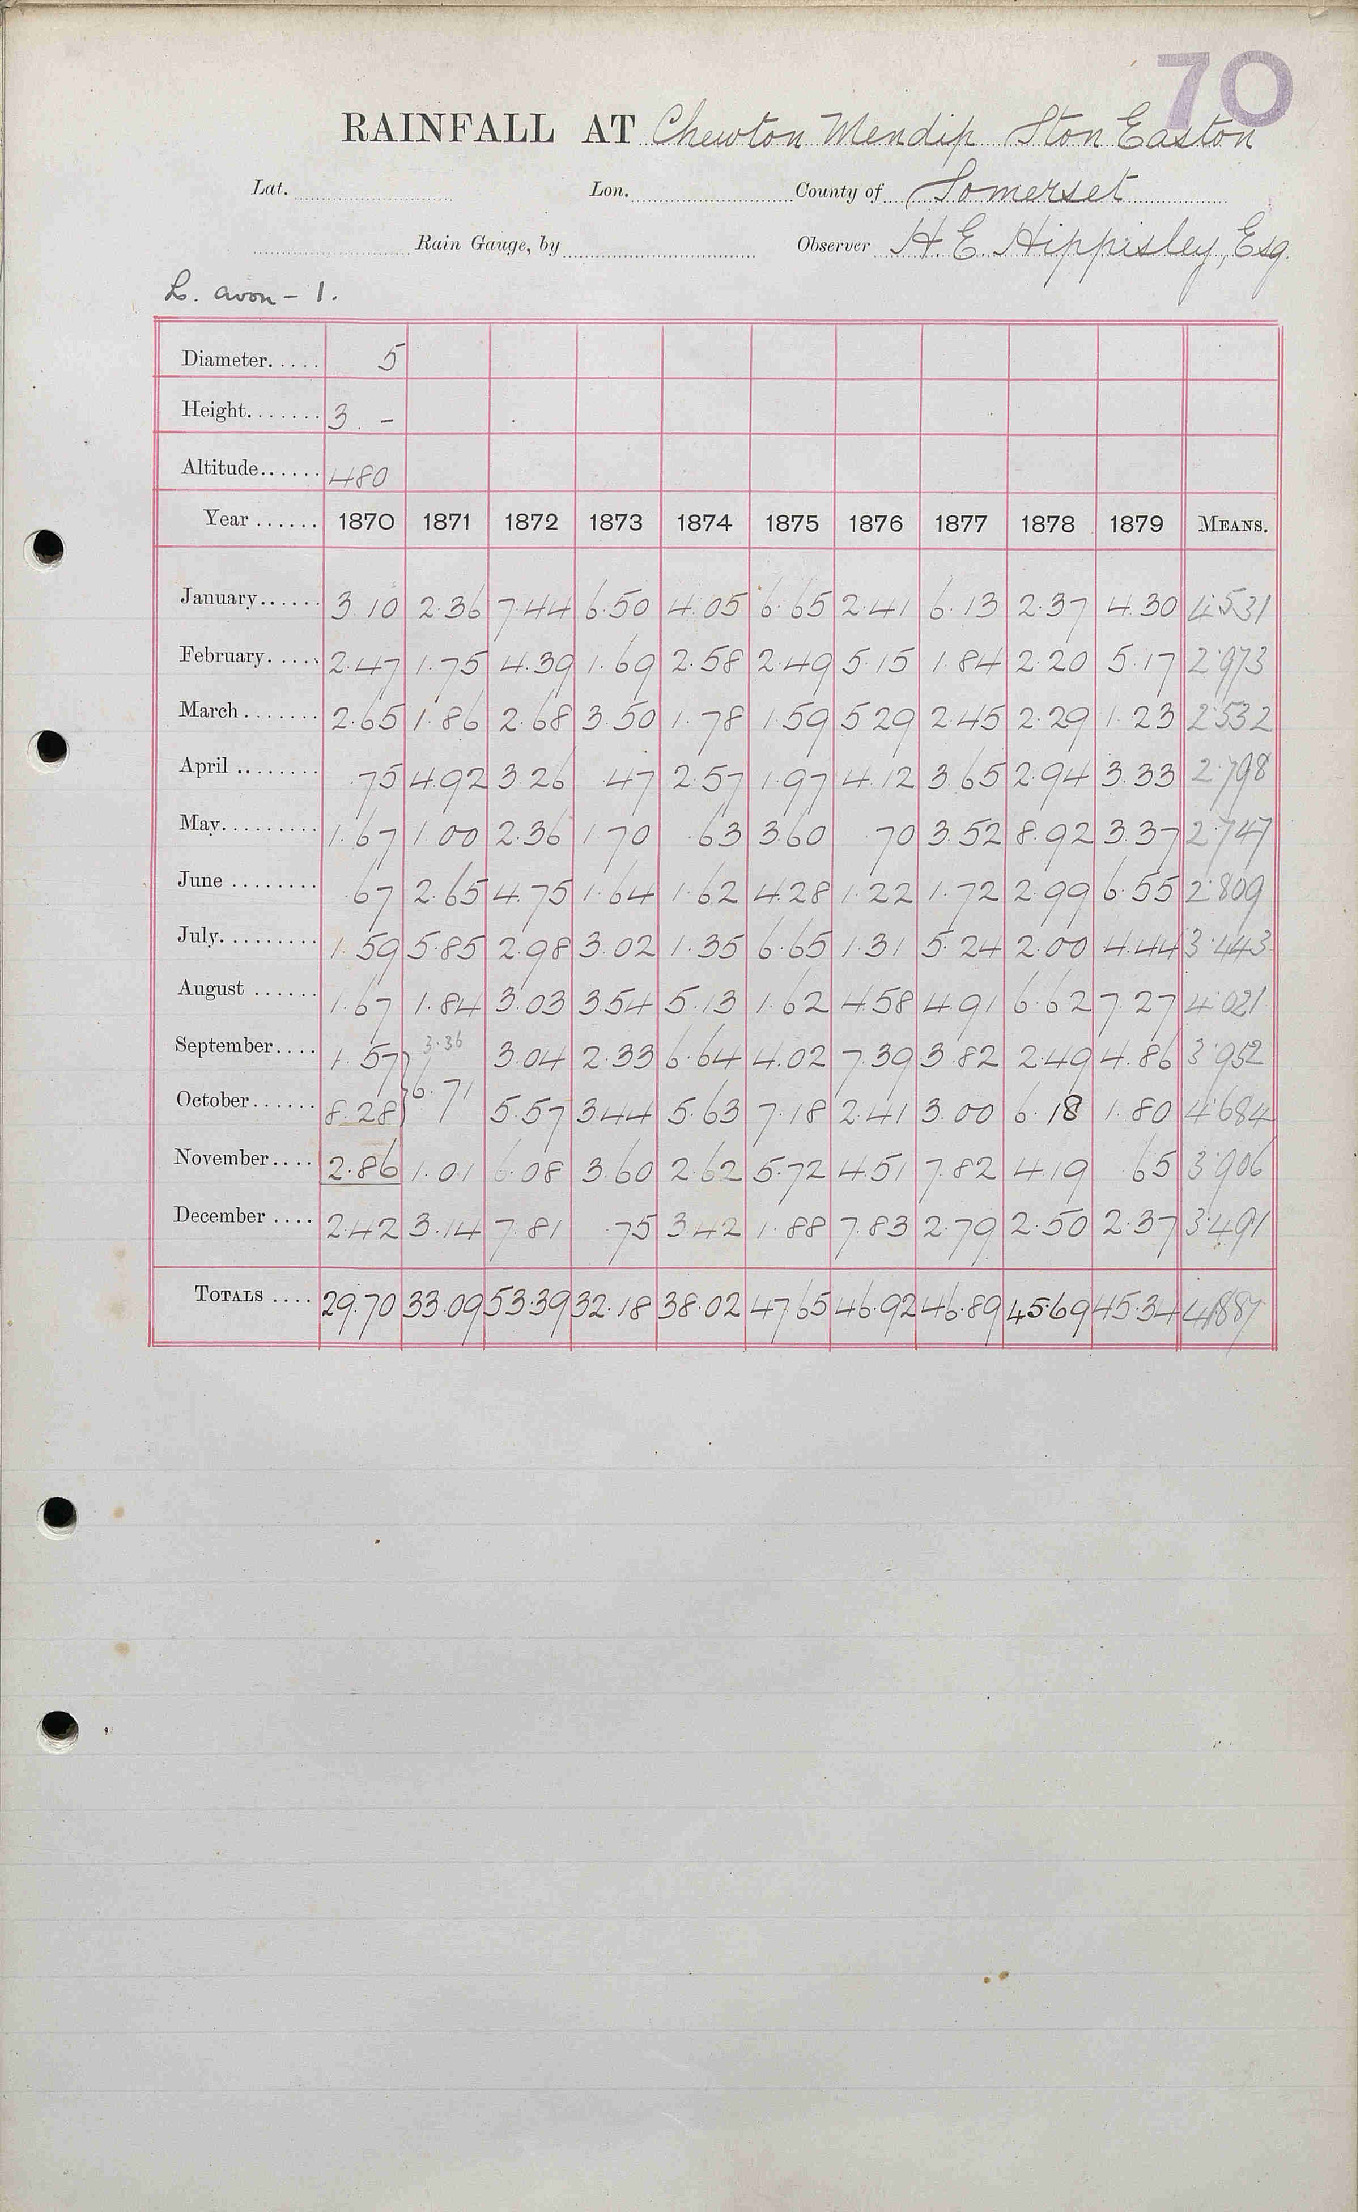 70
RAINFALL AT Chewton Mendip Ston Easton
Lat. Lon. County of Somerset
Rain Gauge, by Observer H. E. Hippisley, Esq.
L. avon - 1.
Diameter..... 5
Height....... 3 . -
Altitude...... 480
Year ...... 1870 1871 1872 1873 1874 1875 1876 1877 1878 1879 MEANS.
January...... 3.10 2.36 7.44 6.50 4.05 6.65 2.41 6.13 2.37 4.30 4.531
February..... 2.47 1.75 4.39 1.69 2.58 2.49 5.15 1.84 2.20 5.17 2.973
March ....... 2.65 1.86 2.68 3.50 1.78 1.59 5.29 2.45 2.29 1.23 2.532
April ........ .75 4.92 3.26 .47 2.57 1.97 4.12 3.65 2.94 3.33 2.798
May......... 1.67 1.00 2.36 1.70 .63 3.60 .70 3.52 8.92 3.37 2.747
June ........ .67 2.65 4.75 1.64 1.62 4.28 1.22 1.72 2.99 6.55 2.809
July......... 1.59 5.85 2.98 3.02 1.35 6.65 1.31 5.24 2.00 4.44 3.443
August ...... 1.67 1.84 3.03 3.54 5.13 1.62 4.58 4.91 6.62 7.27 4.021
September.... 1.57 3.36 3.04 2.33 6.64 4.02 7.39 3.82 2.49 4.86 3.952
October...... 8.28 } 6.71 5.57 3.44 5.63 7.18 2.41 3.00 6.18 1.80 4.684
November.... 2.86 1.01 6.08 3.60 2.62 5.72 4.51 7.82 4.19 .65 3.906
December .... 2.42 3.14 7.81 .75 3.42 1.88 7.83 2.79 2.50 2.37 3.491
TOTALS .... 29.70 33.09 53.39 32.18 38.02 47.65 46.92 46.89 45.69 45.34 41.887